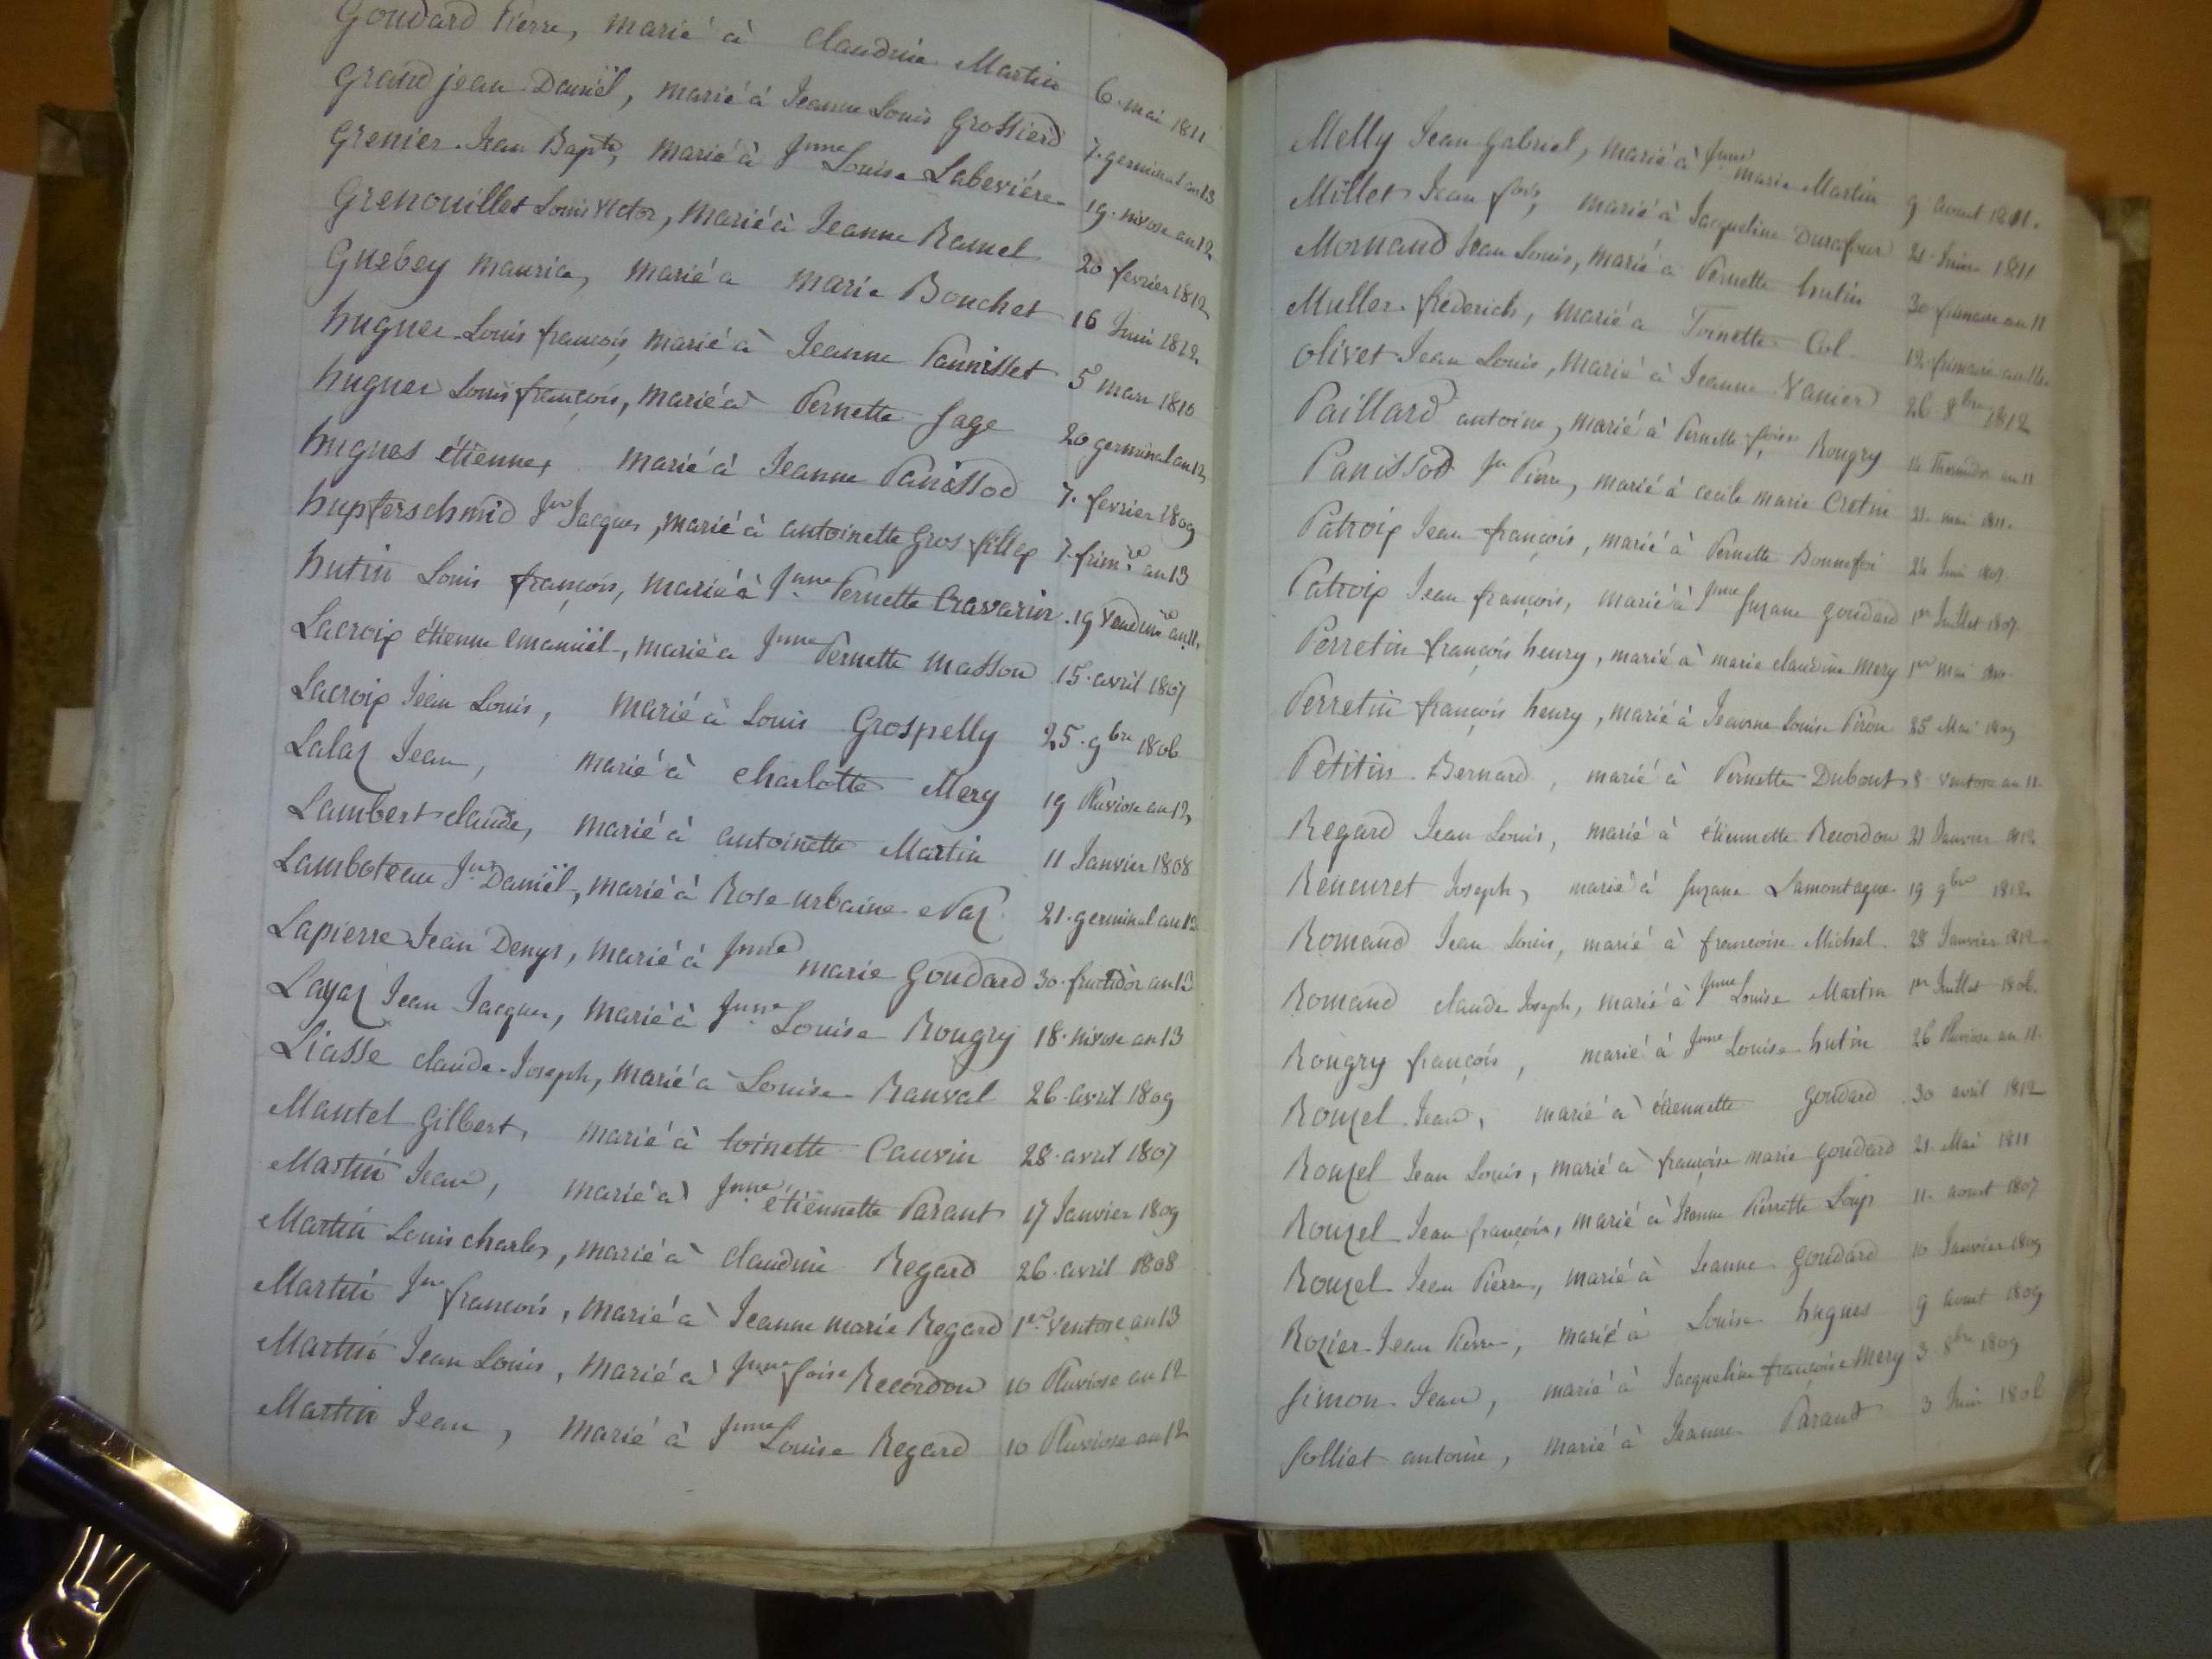 Goudard Pierre, marié à Claudine Martin 6. mai 1811
Grandjean Daniël, marié à Jeanne Louis Grossierd 7. germinal an 13
Grenier Jean Bapte, marié à Jnne Louise Labeviére 19. nivose an 12
Grenouillet Louis Victor, marié à Jeanne Ramel 20 fevrier 1812
Guebey maurice, marié a marie Bouchet 16 Juin 1812
hugues Louis françois, marié à Jeanne Pannisset 5 mars 1810
hugues Louis françois, marié à Pernette Sage 20 germinal an 12
hugues étienne, marié à Jeanne Panissod 7. fevrier 1809
hupferschmid Jn Jacques, marié à antoinette Gros fillex 7. frimre an 13
hutin Louis françois, marié à Jnne Pernette Cravarin 19 Vendmre an 11.
Lacroix étienne Emanuël, marié a Jnne Pernette Masson 15. avril 1807
Lacroix Jean Louis, marié à Louis Grospelly 25. 9bre 1806
Lalaz Jean, marié à charlotte Mery 19 Pluviose an 12
Lambert claude, marié à antoinette Martin 11 Janvier 1808
Lamboteau Jn Daniël, marié à Rose urbaine Naz 21. germinal an 12
Lapierre Jean Denys, marié à Jnne marie Goudard 30. fructidor an 13
Layaz Jean Jacques, marié à Jnne Louise Rougry 18. nivose an 13
Liasse claude Joseph, marié a Louise Ranval 26. avril 1809
Mantel Gilbert, marié à toinette Cauvin 28. avril 1807
Martin Jean, marié a Jnne étiennette Parant 17 Janvier 1809
Martin Louis charles, marié a claudine Regard 26. avril 1808
Martin Jn françois, marié a Jeanne marie Regard 1er Ventose an 13
Martin Jean Louis, marié a Jnne foise Recordon 10 Pluviose an 12
Martin Jean, marié à Jnne Louise Regard 10 Pluviose an 12
Melly Jean Gabriel, marié à Jnne marie Martin 9 aout 1811.
Millet Jean fois, marié à Jacqueline Durafour 21 Juin 1811
Mornand Jean Louis, marié à Pernette hutin 30 frimaire an 11
Muller frederich, marié a Toinette Col 12 frimaire an
Olivet Jean Louis, marié à Jeanne Vanier 26 8bre 1812
Paillard antoine, marié à Pernette foise Rougry 14 Thermidor an 11
Panissod Jn Pierre, marié à cecile marie Cretin 21. mai 1811.
Patroix Jean françois, marié à Pernette Bonnefoi 24 Juin 1807.
Patroix Jean françois, marié à Jnne Suzane goudard 1er Juillet 1807.
Perretin françois henry, marié à marie claudine Mery 1er mai
Perretin françois henry, marié à Jeanne Louise Piron 25 Mai 1809
Petitin Bernard, marié à Pernette Dubout 8 Ventose an 11.
Regard Jean Louis, marié à étiennette Recordon 21 Janvier 1812.
Reneuret Joseph, marié à Suzane Lamontagne 19 9bre 1812.
Romand Jean Louis, marié à francoise Michel 28 Janvier 1812
Romand claude Joseph, marié à Jnne Louise Martin 1er Juillet 1806.
Rougry françois, marié à Jnne Louise hutin 26 Pluviose an 11.
Rouzel Jean, marié à étiennette goudard 30 avril 1812
Rouzel Jean Louis, marié a françoise marie goudard 21. Mai 1811
Rouzel Jean françois, marié à Jeanne Pierrette Loup 11. aout 1807
Rouzel Jean Pierre, marié à Jeanne Goudard 10 Janvier 1809
Rozier Jean Pierre, marié à Louise hugues 9 aout 1809
Simon Jean, marié à Jacqueline françoise Mery 3 8bre 1809
Solliet antoine, marié à Jeanne Parant 3 Juin 1806